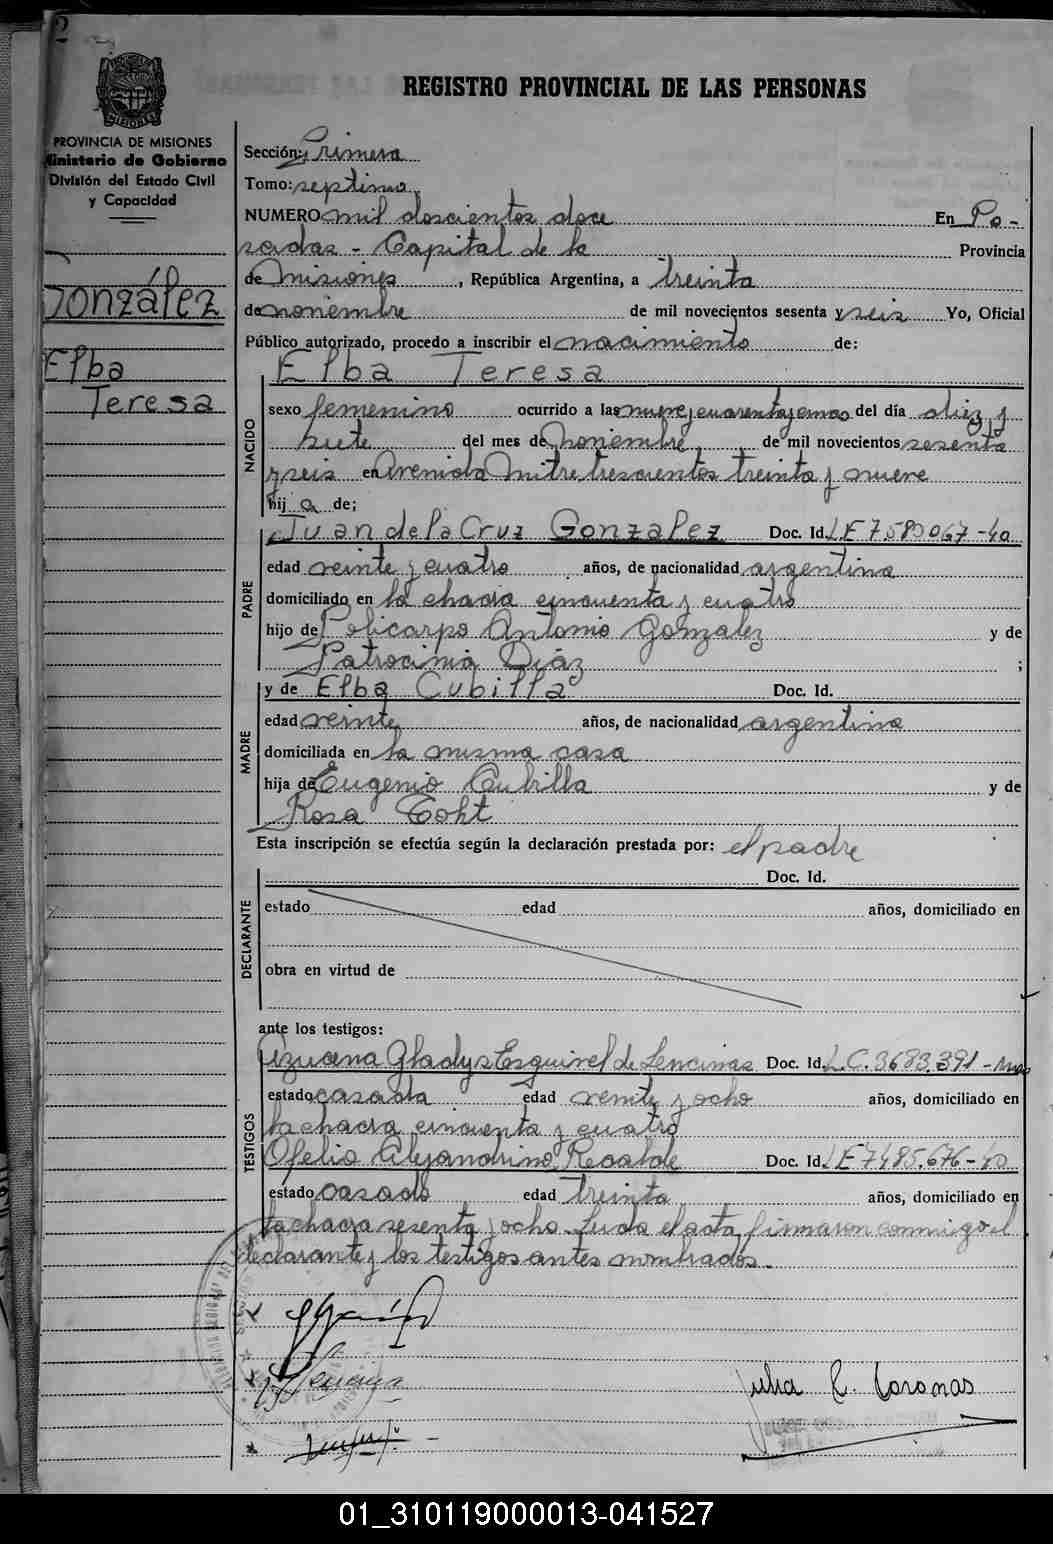 REGISTRO PROVINCIAL DE LAS PERSONAS
PROVINCIA DE MISIONES
Ministerio de Gobierno
División del Estado Civil
y Capacidad
González
Elba
Teresa
Sección: Primera
Tomo: septimo
NUMERO mil doscientos doce En Po-
sadas - Capital de la Provincia
de Misiones, República Argentina, a treinta
de noviembre de mil novecientos sesenta y seis Yo, Oficial
Público autorizado, procedo a inscribir el nacimiento de:
NACIDO
Elba Teresa
sexo femenino ocurrido a las nueve y cuarenta y cinco del día diez y
siete del mes de noviembre de mil novecientos sesenta
y seis en Avenida Mitre trescientos treinta y nueve
hij a de;
PADRE
Juan de la Cruz Gonzalez Doc. Id. LE 7.580067-40
edad veinte y cuatro años, de nacionalidad argentina
domiciliado en la chacra cincuenta y cuatro
hijo de Policarpo Antonio Gonzalez y de
Patrocinia Diáz ;
MADRE
y de Elba Cubilla Doc. Id.
edad veinte años, de nacionalidad argentina
domiciliada en la misma casa
hija de Eugenio Cubilla y de
Rosa Toht
Esta inscripción se efectúa según la declaración prestada por: el padre
DECLARANTE
Doc. Id.
estado edad años, domiciliado en
obra en virtud de
ante los testigos:
TESTIGOS
Azucena Gladys Esquivel de Lencinas Doc. Id. L.C. 3683.391-
estado casada edad veinte y ocho años, domiciliado en
la chacra cincuenta y cuatro
Ofelio Alejandrino Recalde Doc. Id. LE 7485.676-40
estado casado edad treinta años, domiciliado en
la chacra sesenta y ocho. Leida el acta, firmaron conmigo el
declarante y los testigos antes nombrados.-
Julia E. Coronas
01_310119000013-041527